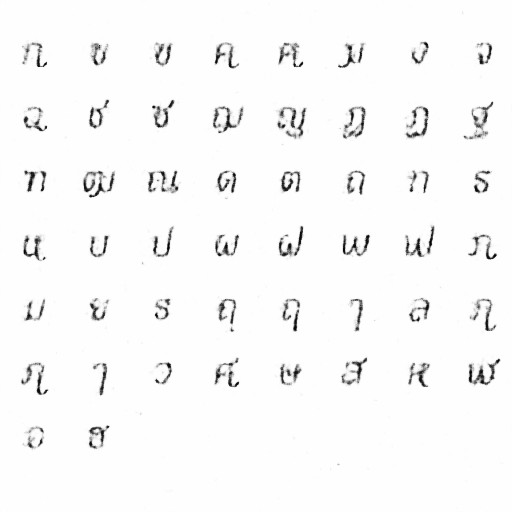 ก ข ฃ ค ฅ ม ง จ
ฉ ช ซ ฌ ญ ฎ ฏ ฐ
ฑ ฒ ณ ด ต ถ ท ธ
น บ ป ผ ฝ พ ฟ ภ
ม ย ร ฤ ฤ ๅ ล ฦ
ฦ ๅ ว ศ ษ ส ห ฬ
อ ฮ